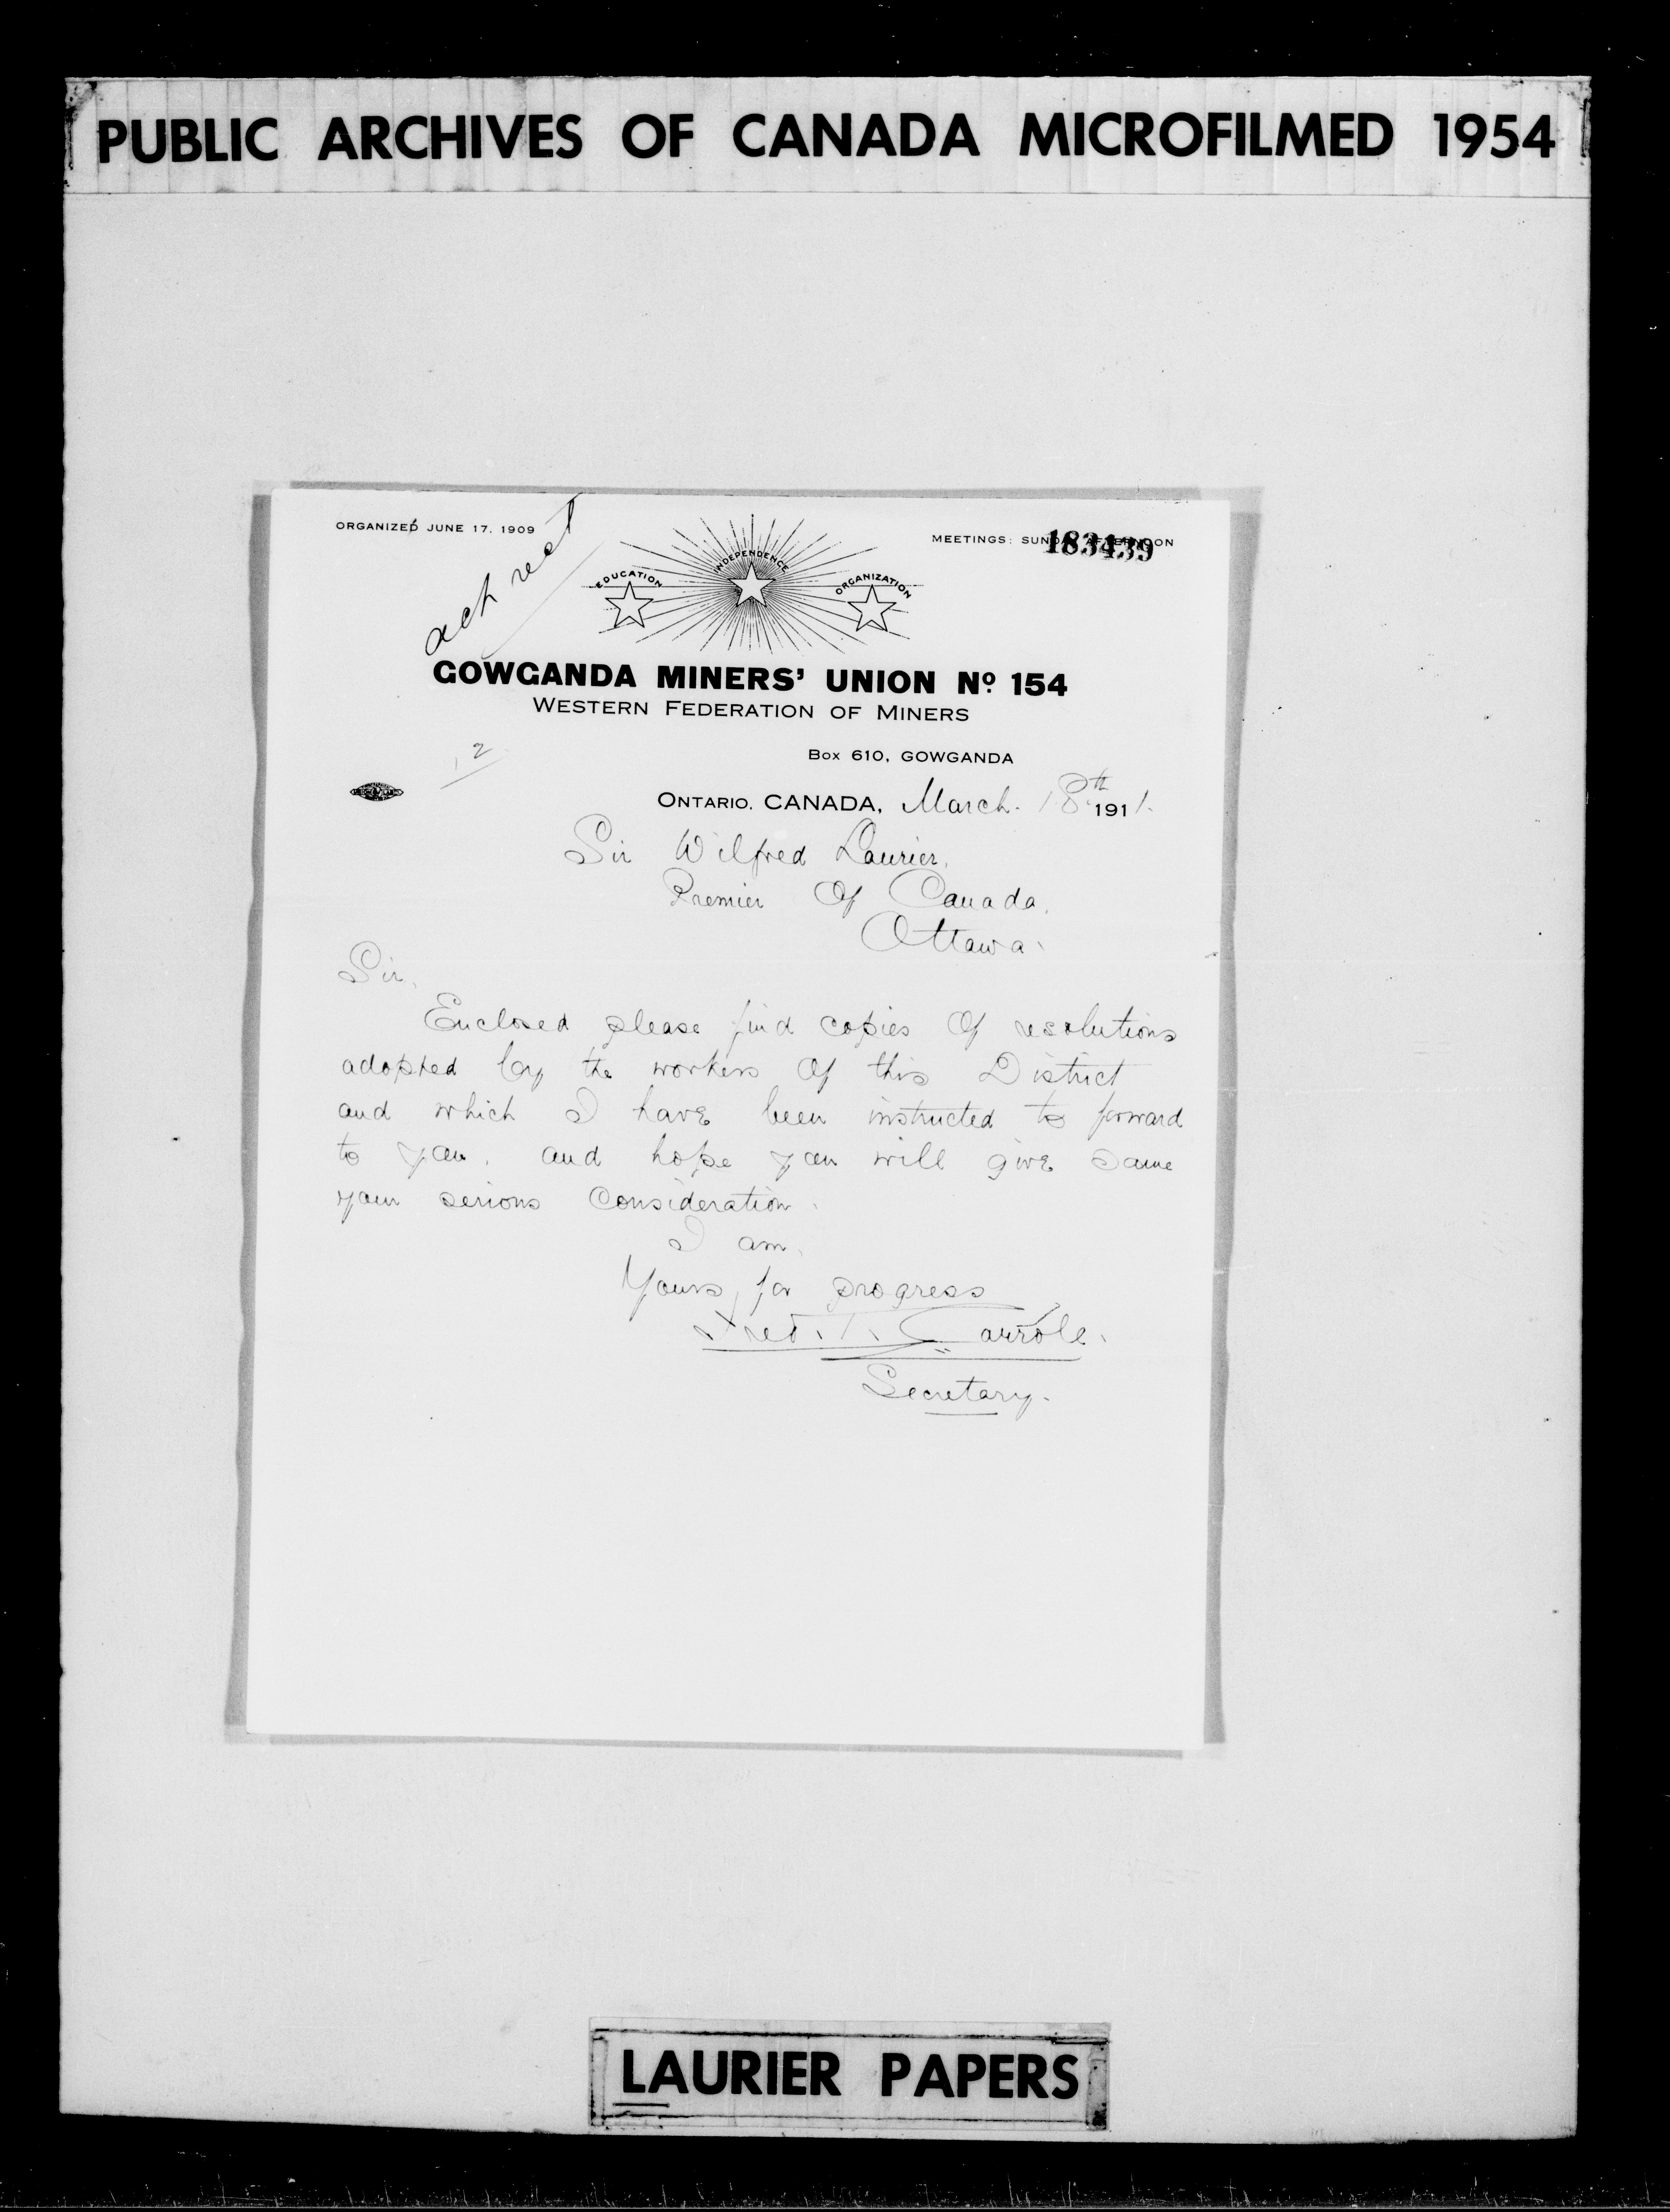 PUBLIC ARCHIVES OF CANADA MICROFILMED 1954
ORGANIZED JUNE 17, 1909
MEETINGS: SUNDAY AFTERNOON
183439
ack rect
EDUCATION
INDEPENDENCE
ORGANIZATION
GOWGANDA MINERS' UNION No 154
WESTERN FEDERATION OF MINERS
2
Box 610, GOWGANDA
ONTARIO, CANADA, March 18th 1911.
Sir Wilfred Laurier,
Premier Of Canada,
Ottawa.
Sir,
Enclosed please find copies Of resolutions
adopted by the workers Of this District
and which I have been instructed to forward
to you, and hope you will give same
your serious Consideration.
I am,
Yours for progress
Fred. T. Carrole.
Secretary.
LAURIER PAPERS